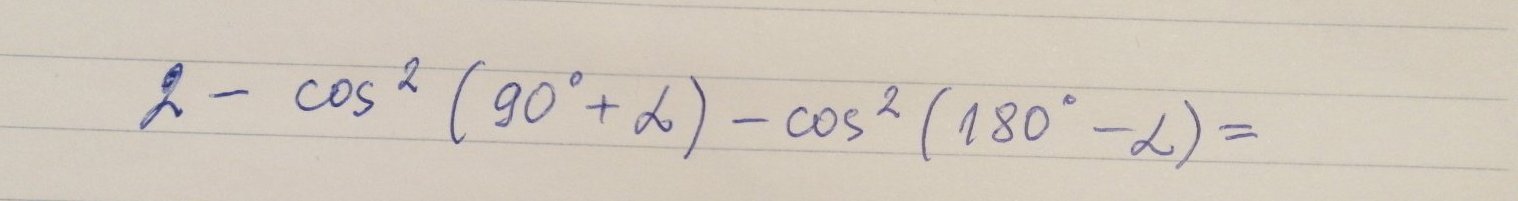 2 - cos² (90° + α) - cos² (180° - α) =